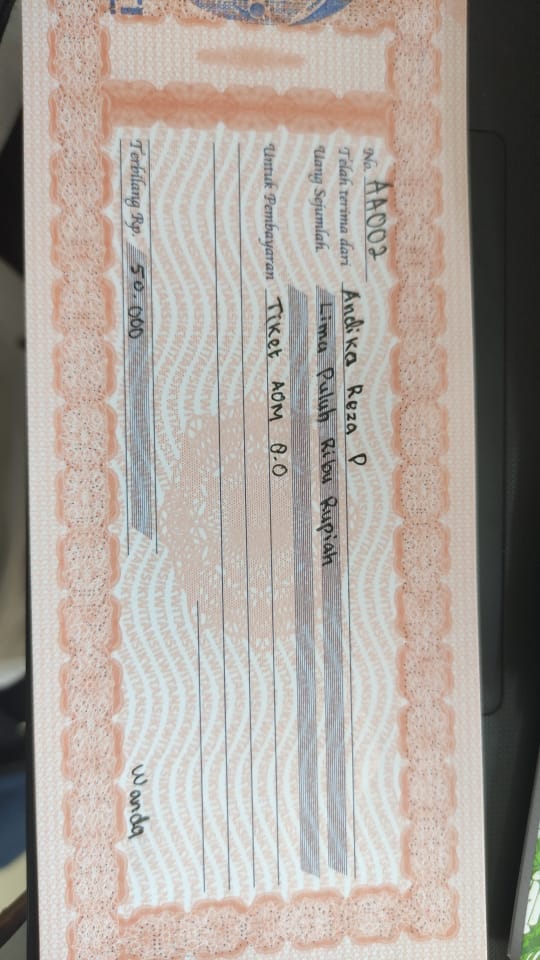 No. AA002
Telah terima dari Andika Reza P
Uang Sejumlah Lima Puluh Ribu Rupiah
Untuk Pembayaran Tiket AOM 8.0
Terbilang Rp. 50.000
Wanda